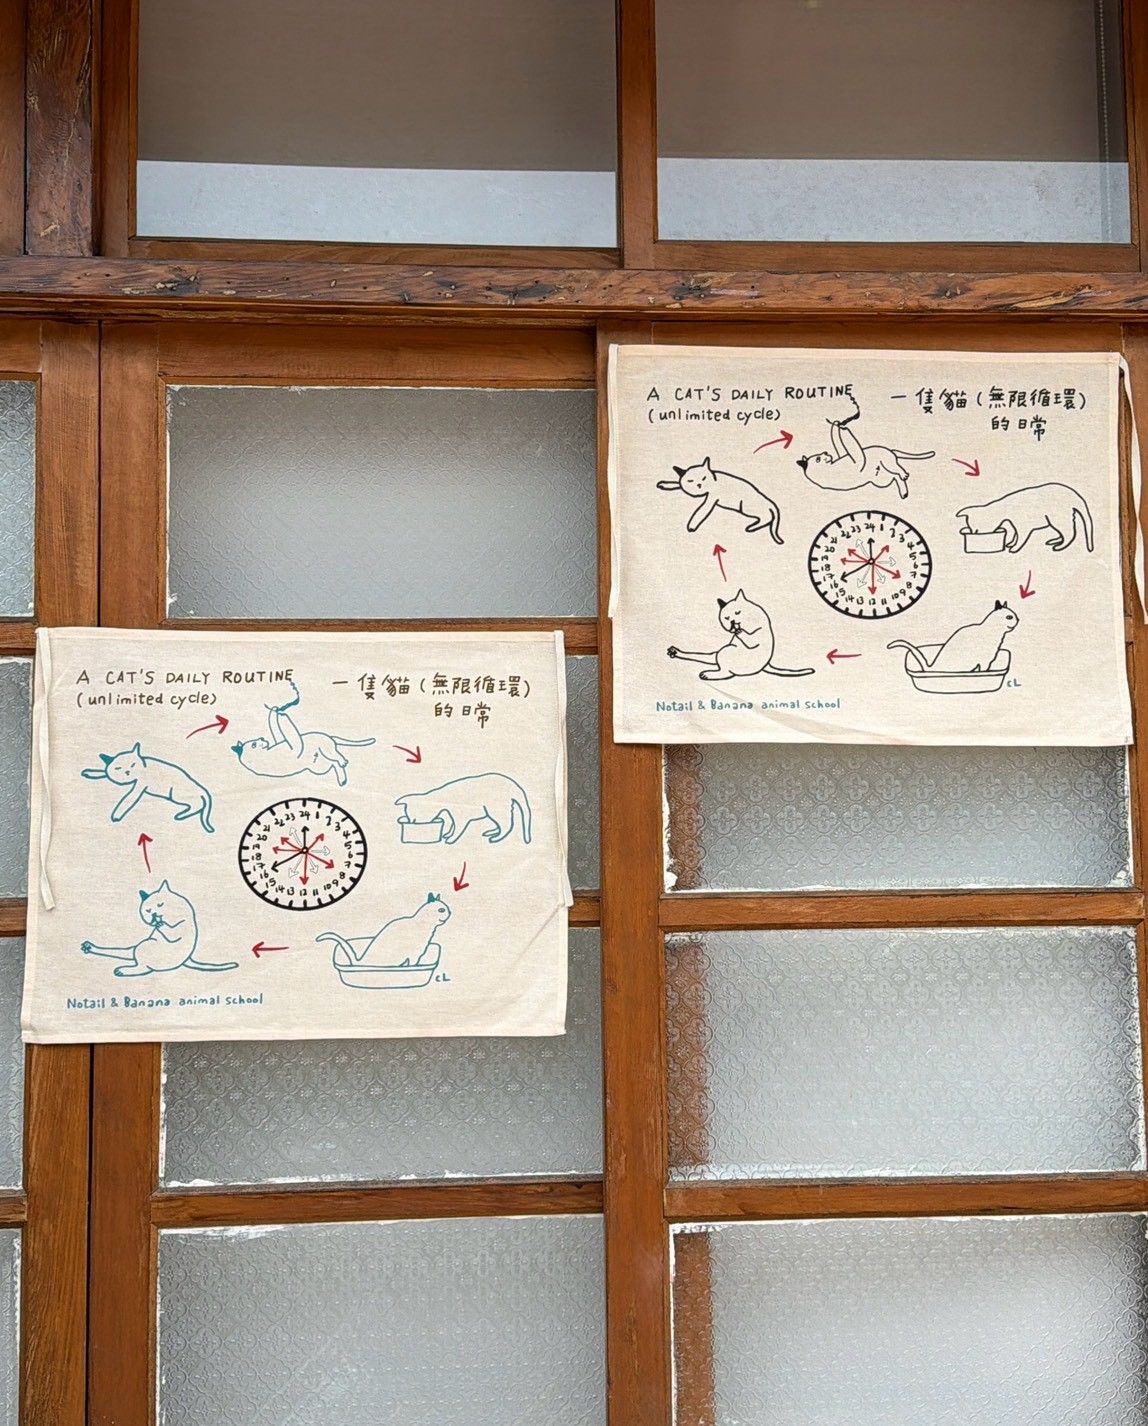 A CAT'S DAILY ROUTINE
(unlimited cycle)
一隻貓(無限循環)
的日常
24 1 2 3 4 5 6 7 8 9 10 11 12 13 14 15 16 17 18 19 20 21 22 23
cL
Notail & Banana animal school
A CAT'S DAILY ROUTINE
(unlimited cycle)
一隻貓(無限循環)
的日常
24 1 2 3 4 5 6 7 8 9 10 11 12 13 14 15 16 17 18 19 20 21 22 23
cL
Notail & Banana animal school